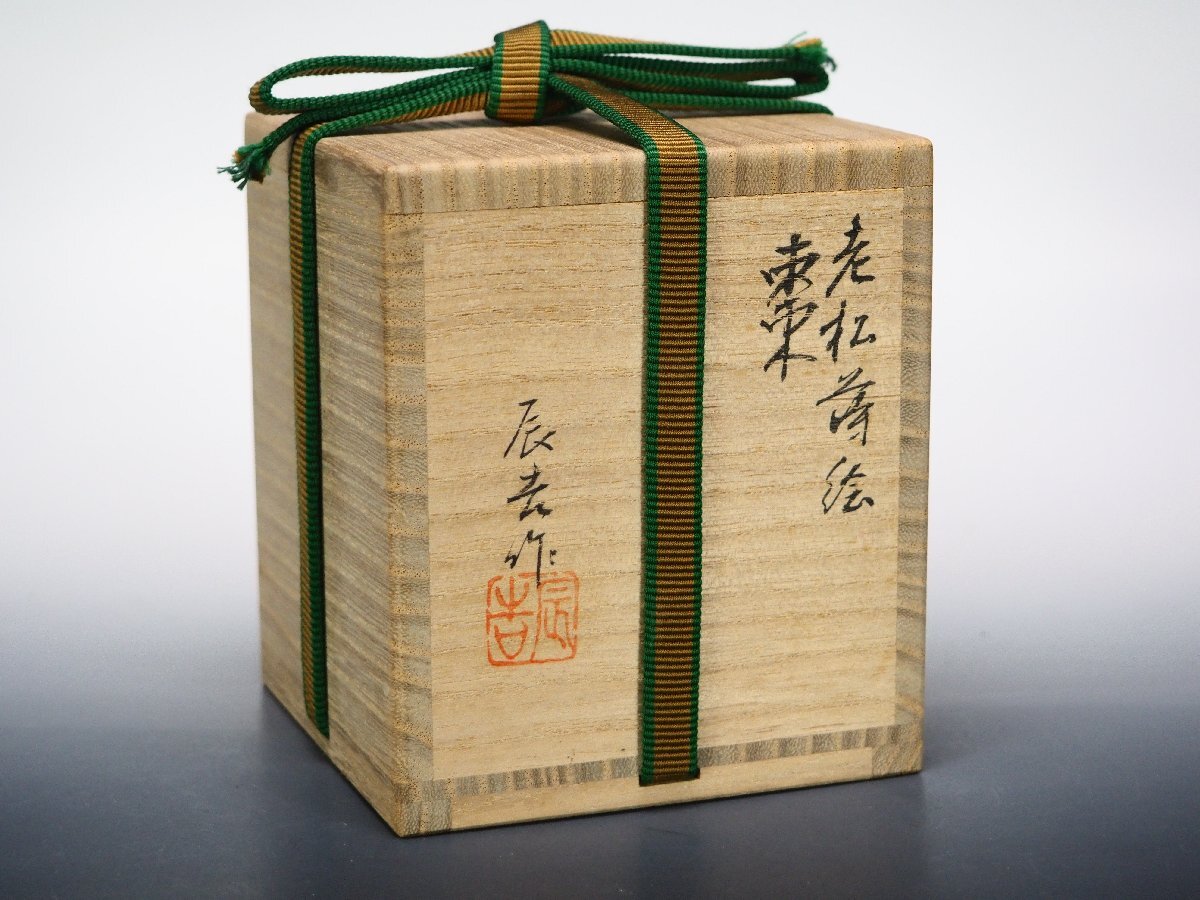 老松蒔絵
棗
辰吉作
辰吉